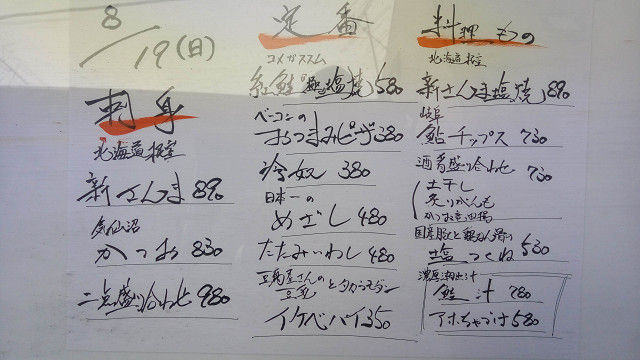 8/19(日)
刺身
北海道根室
新さんま 890
気仙沼
かつお 830
二点盛り合わせ 980
定番
コメガススム
紅鮭 塩焼 580
ベーコンの
おつまみピザ 380
冷奴 380
日本一の
めざし 480
たたみいわし 480
豆腐屋さんの
豆乳
イケベパイ 350
料理もの
北海道根室
新さんま塩焼 890
岐阜
鮎チップス 730
酒肴盛り合わせ 730
土干し
かつお
国産豚と
塩つくね 530
濃厚潮出汁
鮭汁 780
アホちゃづけ 580